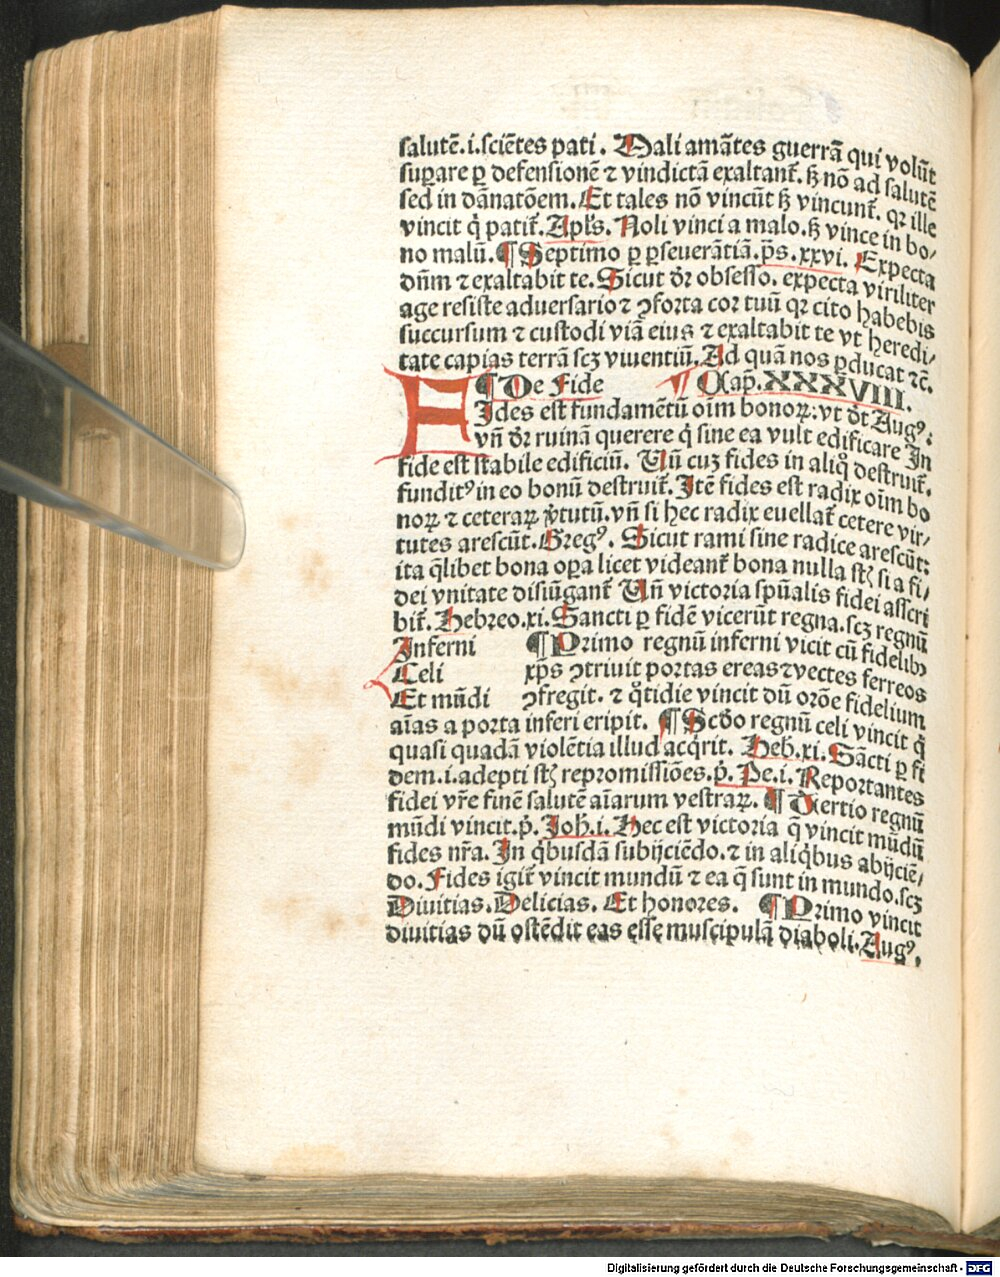 salutē.i.sciētes pati. Mali amātes guerrā qui volūt
suꝑare ꝑ defensionē ⁊ vindictā exaltant᷑. sꝫ nō ad salutē
sed in dānatōem. Et tales nō vincūt sꝫ vincunt᷑. qꝛ ille
vincit q̇ patit᷑. Apl's. Noli vinci a malo. sꝫ vince in bo/
no malū. ¶ Septimo ꝑ ꝑseuerātiā. p̄s. xxvi. Expecta
dn̄m ⁊ exaltabit te. Sicut dr̄ obsesso. expecta viriliter
age resiste aduersario ⁊ ꝯforta cor tuū qꝛ cito habebis
succursum ⁊ custodi viā eius ⁊ exaltabit te vt heredi/
tate capias terrā scꝫ viuentiū. Ad quā nos ꝑducat ⁊c̄.
¶ De Fide ¶ Cap̄. XXXVIII.
FIdes est fundamētū oīm bonoꝝ: vt dt̄ Augꝰ.
vn̄ dr̄ ruinā querere q̇ sine ea vult edificare In
fide est stabile edificiū. Un̄ cuꝫ fides in aliq̊ destruit᷑.
funditꝰ in eo bonū destruit᷑. Itē fides est radix oīm bo
noꝝ ⁊ ceteraꝝ v̄tutū. vn̄ si hec radix euellat᷑ cetere vir/
tutes arescūt. Gregꝰ. Sicut rami sine radice arescūt:
ita q̄libet bona oꝑa licet videant᷑ bona nulla st̄ si a fi/
dei vnitate disiūgant᷑ Un̄ victoria spūalis fidei asscri
bit᷑. Hebreo. xi. Sancti ꝑ fidē vicerūt regna. scꝫ regnū
Inferni ¶ Primo regnū inferni vicit cū fidelibꝫ
Celi xp̄s ꝯtriuit portas ereas ⁊ vectes ferreos
Et mūdi ꝯfregit. ⁊ q̊tidie vincit dū orōe fidelium
aīas a porta inferi eripit. ¶ Scd̄o regnū celi vincit q̇
quasi quadā violētia illud acq̇rit. Heb. xi. Sācti ꝑ fi
dem. i. adepti st̄ repromissiōes. ṗ. Pe. i. Reportantes
fidei vr̄e finē salutē aīarum vestraꝝ. ¶ Tertio regnū
mūdi vincit. ṗ. Joh. i. Hec est victoria q̄ vincit mūdū
fides nr̄a. In q̇busdā subijciēdo. ⁊ in aliq̇bus abijciē/
do. Fides igit᷑ vincit mundū ⁊ ea q̄ sunt in mundo. scꝫ
Diuitias. Delicias. Et honores. ¶ Primo vincit
diuitias dū ostēdit eas esse muscipulā diaboli. Augꝰ.
Digitalisierung gefördert durch die Deutsche Forschungsgemeinschaft - DFG